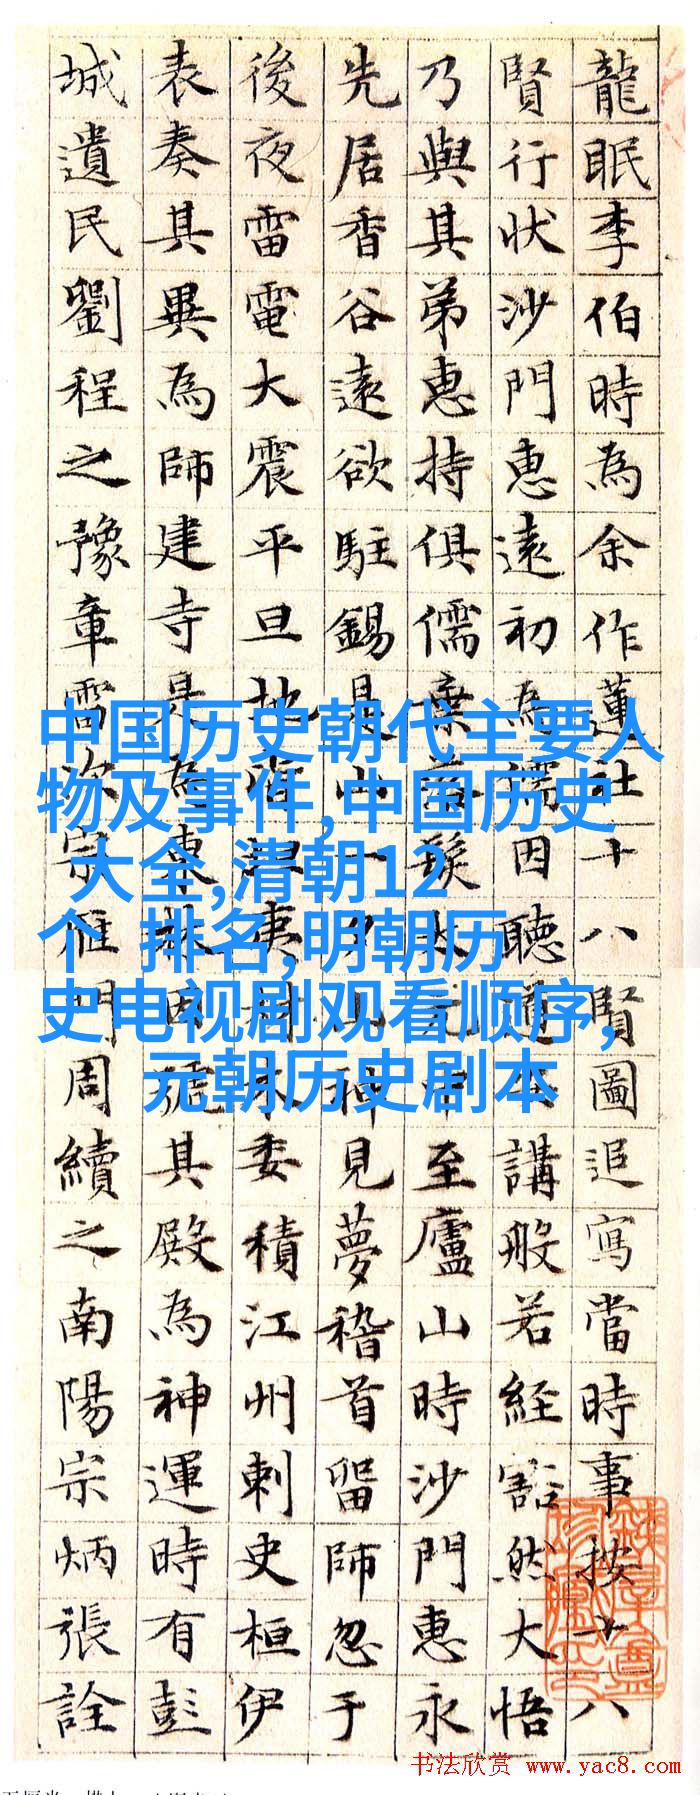 龍眠李伯時為余作蓮社十八賢圖追寫當時事按十八
賢行狀沙門惠遠初為儒因聽道安講般若經豁然大悟
乃與其弟惠持俱儒棄髮太元中至廬山時沙門惠永
先居香谷遠欲駐錫是山一夕山神見夢稽首留師忽于
後夜雷電大震平旦地夷材木委積江州刺史桓伊
表奏其異為師建寺是為東林因號其殿為神運時有彭
城遺民劉程之豫章雷次宗雁門周續之南陽宗炳張詮
中国历史朝代主要人
物及事件,中国历史
大全,清朝12
个 排名,明朝历
史电视剧观看顺序,
元朝历史剧本
书法欣赏 www.yac8.com